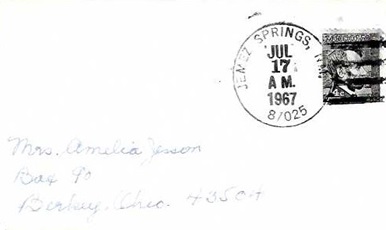 JEMEZ SPRINGS, N.M.
JUL
17
A M
1967
87025
Mrs. Amelia Jesson
Box 90
Berkey, Ohio. 43504